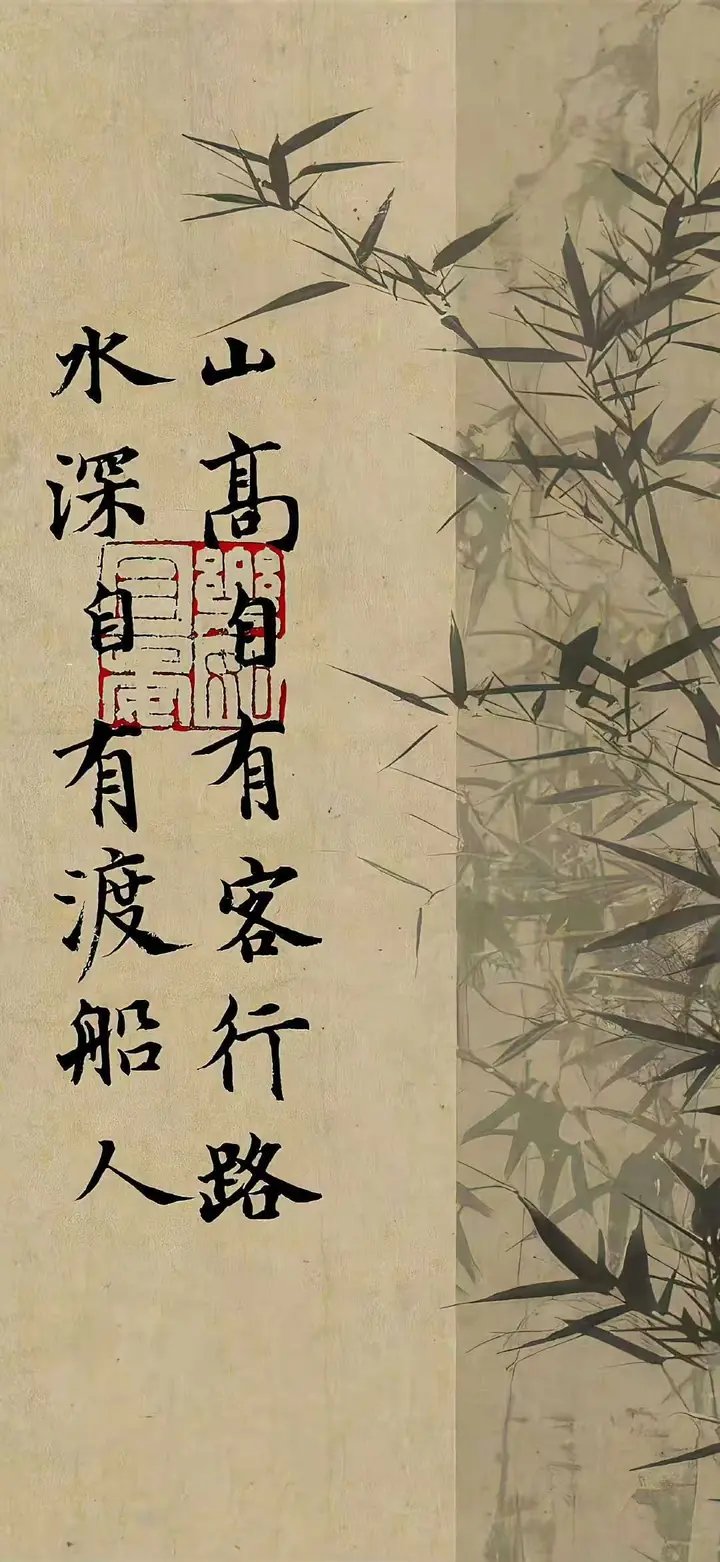 山高自有客行路
水深自有渡船人